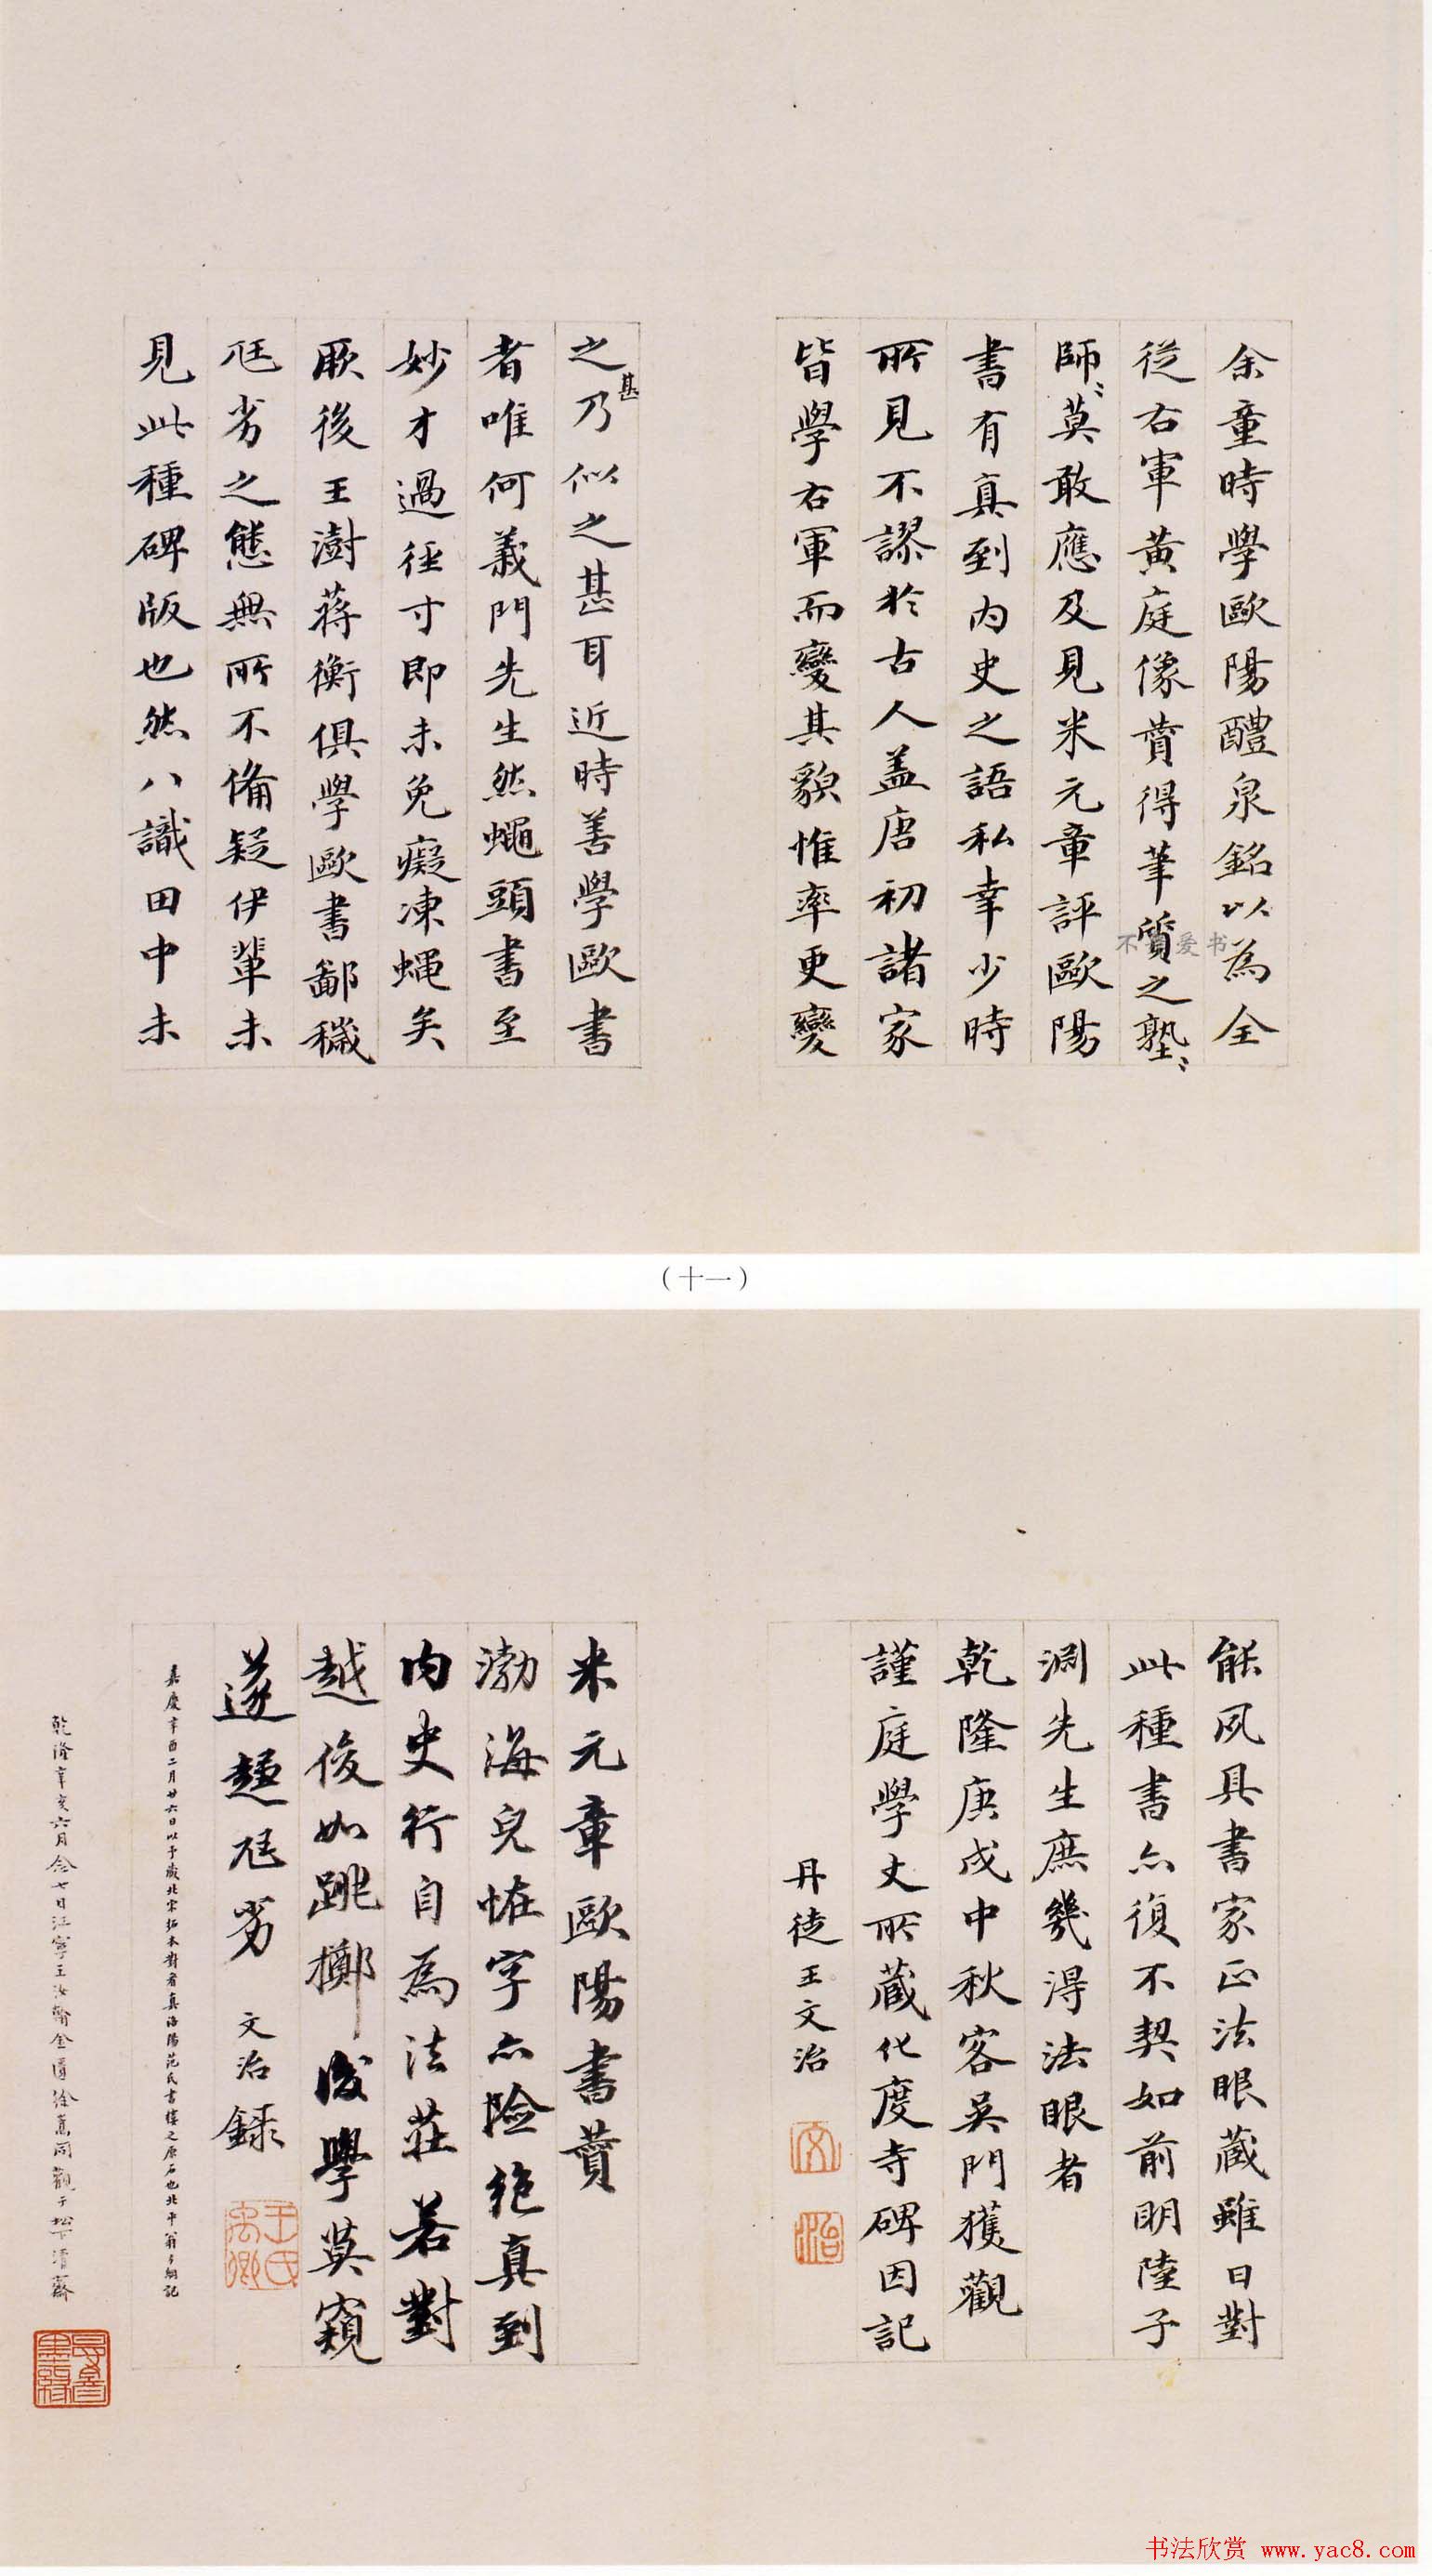 余童時學歐陽醴泉銘以為全
從右軍黃庭像贊得筆質之塾〻
師〻莫敢應及見米元章評歐陽
書有真到內史之語私幸少時
所見不謬於古人蓋唐初諸家
皆學右軍而變其貌惟率更變
之甚乃似之甚耳近時善學歐書
者唯何義門先生然蠅頭書至
妙才過徑寸即未免癡凍蠅矣
厥後王澍蔣衡俱學歐書鄙穢
尫劣之態無所不備疑伊輩未
見此種碑版也然八識田中未
(十一)
能夙具書家正法眼藏雖日對
此種書亦復不契如前明陸子
淵先生庶幾得法眼者
乾隆庚戌中秋客吳門獲觀
謹庭學丈所藏化度寺碑因記
丹徒王文治
文
治
米元章歐陽書贊
渤海兒恠字亦險絕真到
內史行自為法莊若對
越俊如跳擲後學莫窺
遂趨尫劣 文治錄
王氏禹卿
嘉慶辛酉二月廿六日以予藏北宋拓本對看真洛陽范氏書樓之原石也北平翁方綱記
乾隆辛亥六月廿七日江寧王汝翰金匱徐嵩同觀于松下清齋
不 爱书
书法欣赏 www.yac8.com